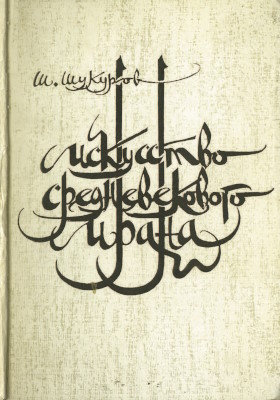 Ш. Шукуров
искусство
средневекового
ирана